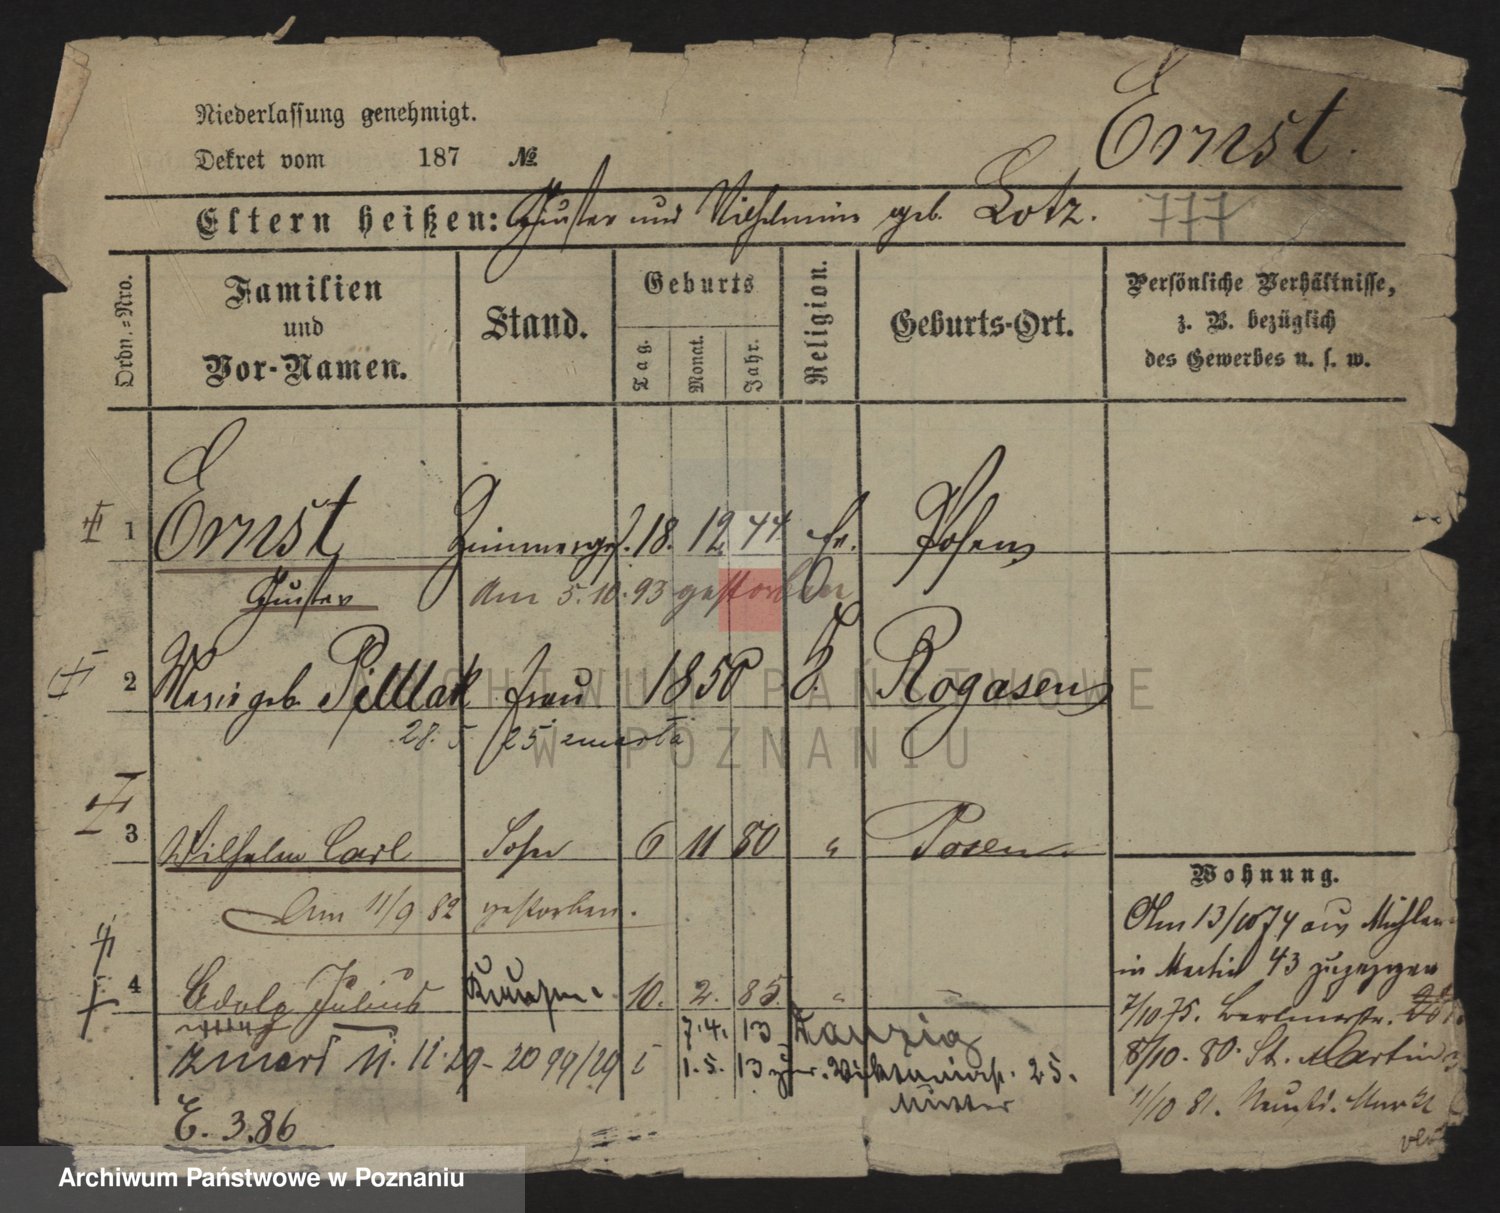 Niederlassung genehmigt.
Dekret vom 187 №
Ernst.
Eltern heißen: Gustav und Wilhelmine geb. Lotz.
777
Ordn.=Nro.
Familien und Vor-Namen.
Stand.
Geburts
Tag.
Monat.
Jahr.
Religion.
Geburts-Ort.
Persönliche Verhältnisse,
z. B. bezüglich
des Gewerbes u. s. w.
1 Ernst Zimmerges. 18. 12. 44 Ev. Posen
Gustav am 5. 10. 93 gestorben
2 Marie geb. Pilllak Frau 1850 Rogasen
28. 5 25 zmarła
3 Wilhelm Carl Sohn 6 11 80 " Posen
Am 11/9 82 gestorben.
4 Adolf Julius 10. 2. 85 " "
7. 4. 13 Danzig
zmarł 11. 11. 29 - 2099/29 1. 5. 13 25.
Mutter
E. 3.86
Wohnung.
Am 13/10 74 aus Mühlen
in Martin 43 zugezogen
7/10 75. Berlinerstr.
8/10. 80. St. Martin
11/10 81. Neust. Markt
ARCHIWUM PAŃSTWOWE
W POZNANIU
Archiwum Państwowe w Poznaniu